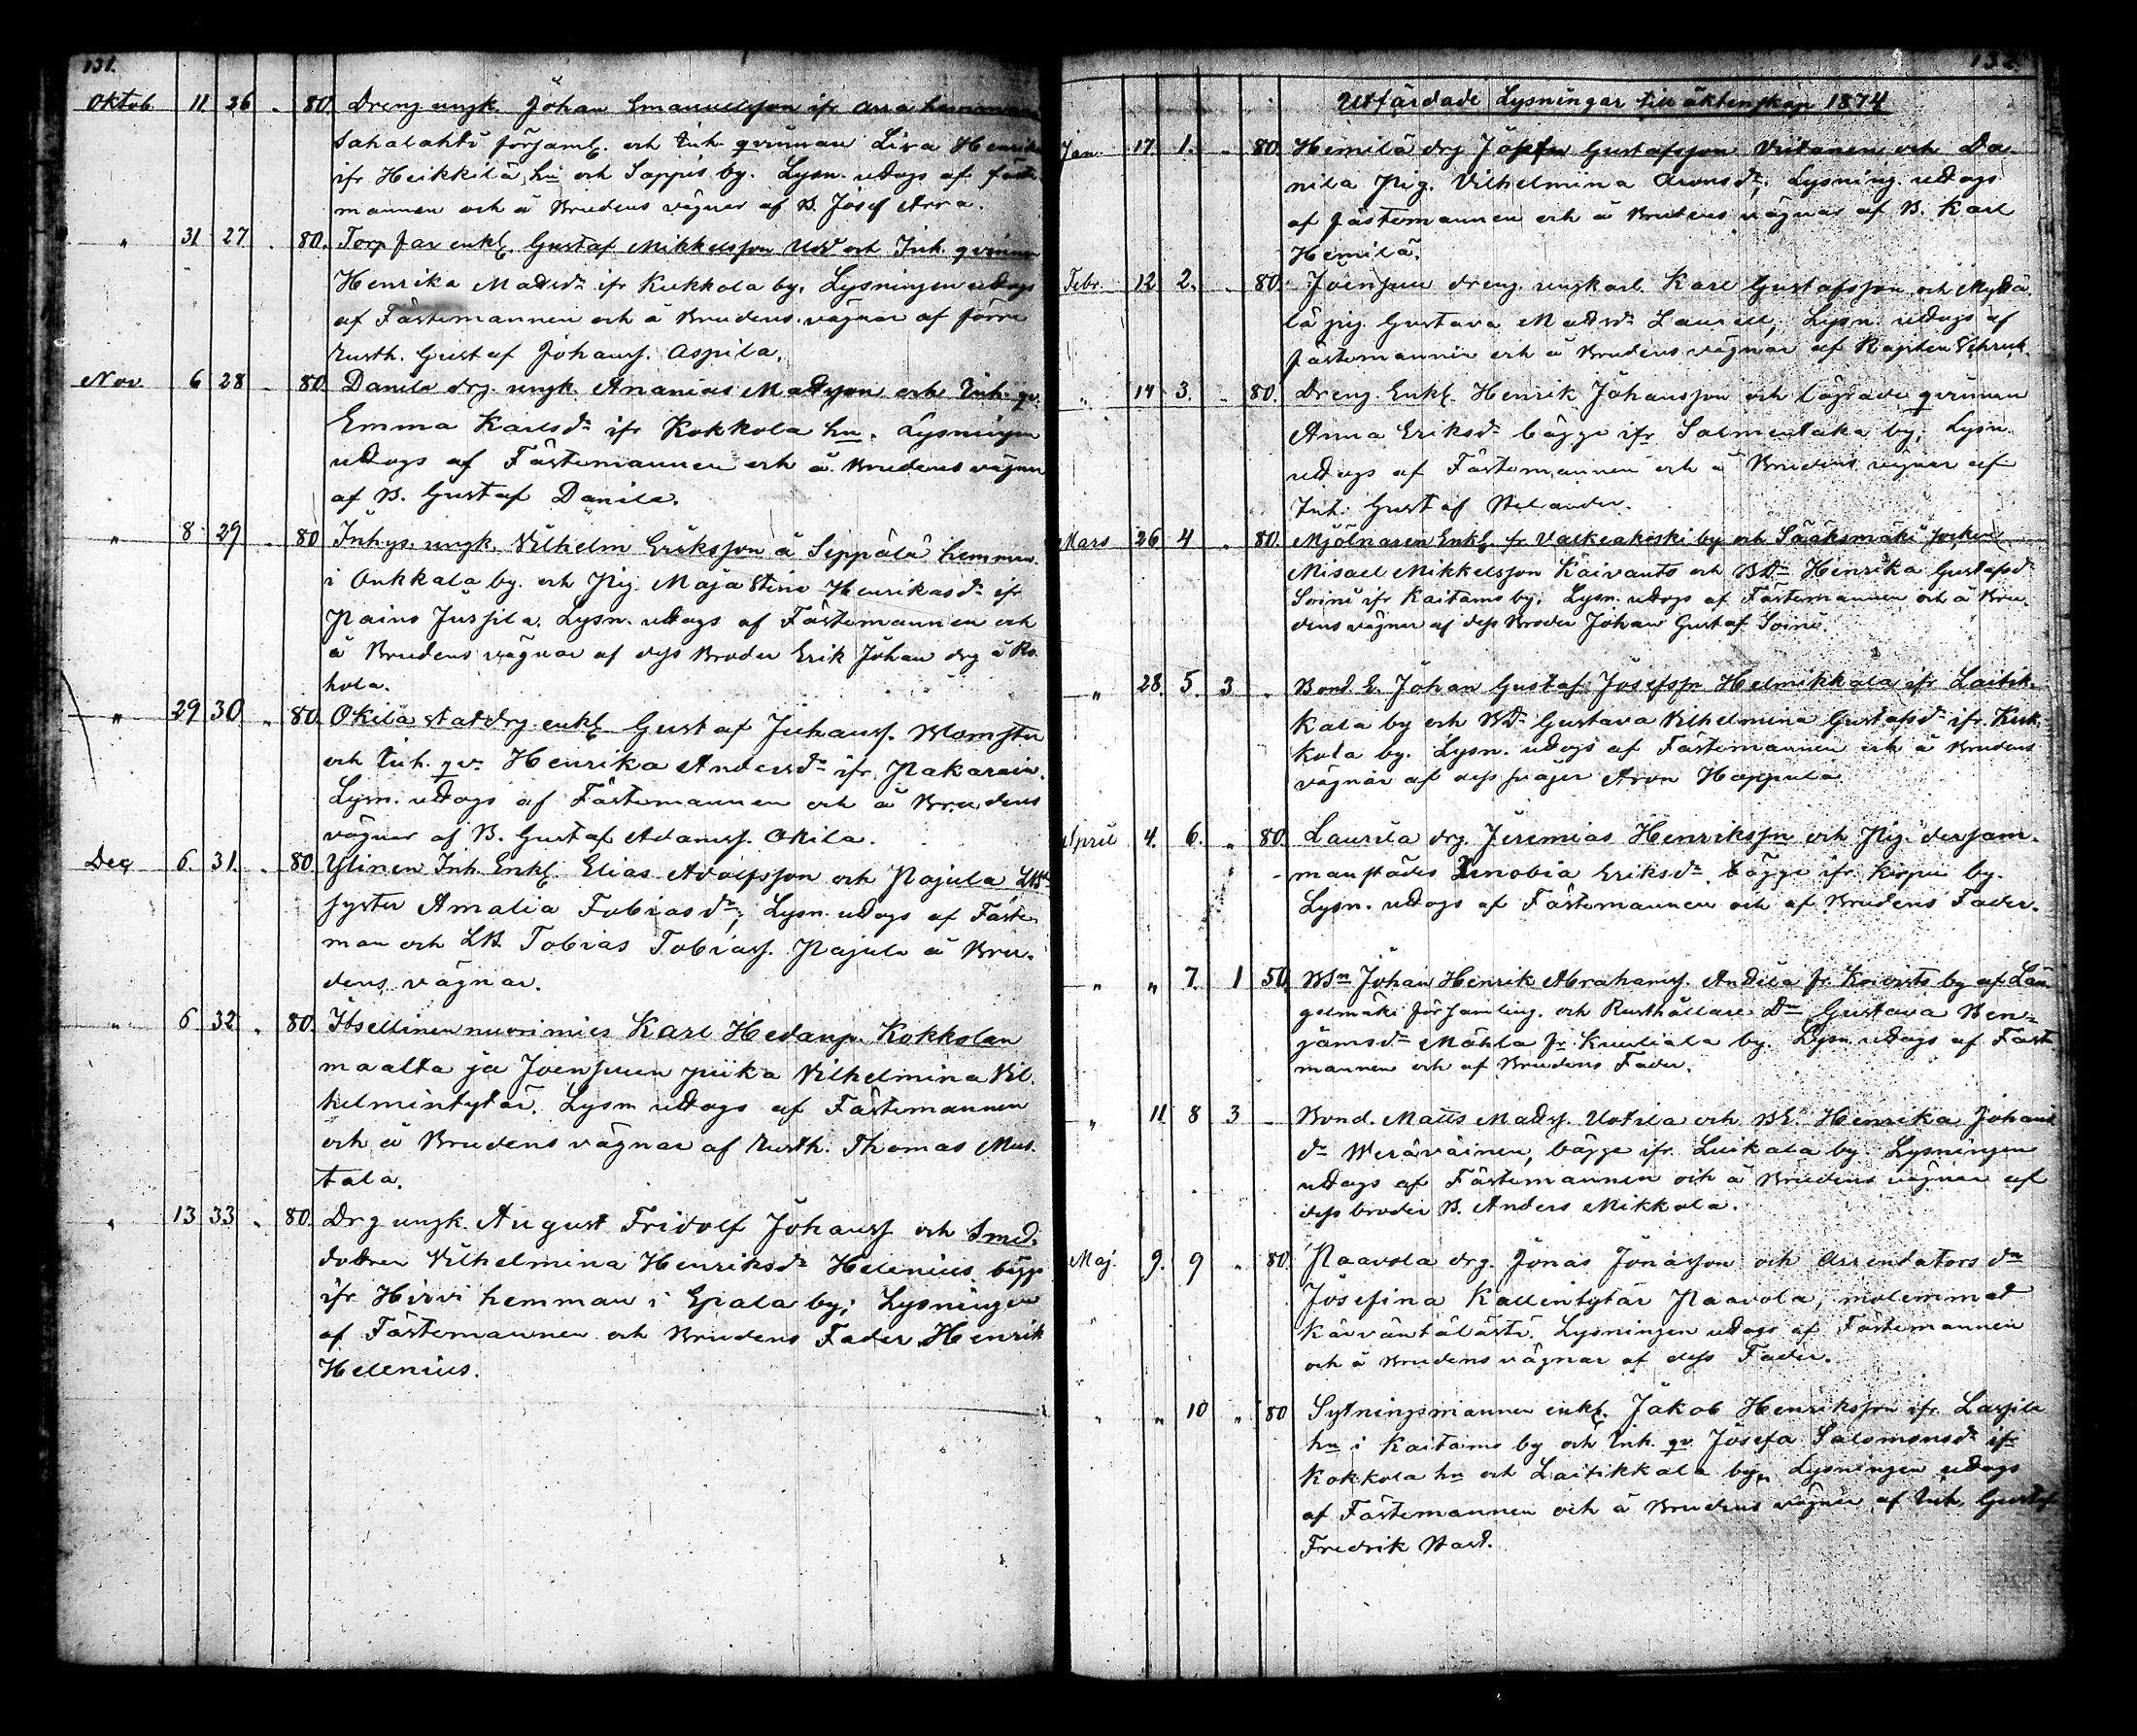 131.
Oktob. 11 26 „ 80. Dreng ungk. Johan Emanuelsson ifr Arra hemman
Sahalahti församl. och Inh. qvinnan Lisa Henriks
ifr Heikkilä hn och Sappis by. Lysn. uttogs af fäste-
mannen och å Brudens vägnar af B. Josef Arra.
„ 31 27 „ 80. Torpfar enkl. Gustaf Mikkelsson Uoti och Inh. qvinnan
Henrika Matsdr ifr Kukkola by. Lysningen uttogs
af Fästemannen och å Brudens vägnar af förre
Rusth. Gustaf Johanss. Aspila.
Nov. 6 28 „ 80. Danila drg. ungk. Ananias Mattsson och Inh. qv.
Emma Karlsdr ifr Kokkola hn. Lysningen
uttogs af Fästemannen och å Brudens vägnar
af B. Gustaf Danila.
„ 8 29 „ 80 Inhys. ungk. Vilhelm Eriksson å Seppälä hemman
i Onkkala by. och Pig. Maja Stina Henriksdr ifr
Paino Jussila. Lysn. uttogs af Fästemannen och
å Brudens vägnar af dess Broder Erik Johan drg å Ro-
hola.
„ 29 30 „ 80. Okila statdrg. enkl. Gustaf Juhanss. Blomster
och Inh. qv. Henrika Andersdr ifr Pakarain.
Lysn. uttogs af Fästemannen och å Brudens
vägnar af B. Gustaf Adamss. Okila.
Dec. 6. 31. „ 80. Ylinen Inh. Enkl. Elias Adolfsson och Pajula LB
syster Amalia Tobiasdr; Lysn. uttogs af Fäste-
man och LB. Tobias Tobiass. Pajula å Bru-
dens vägnar.
„ 6 32 „ 80. Itsellinen nuorimies Karl Hedanp. Kokkolan
maalta ja Joensuun piika Vilhelmina Vil-
helmintytär. Lysn uttogs af Fästemannen
och å Brudens vägnar af Rusth. Thomas Mus-
tala.
„ 13 33 „ 80. Drg ungk. August Fridolf Johanss och Smed-
dottren Vilhelmina Henriksdr Helenius bägge
ifr Hirvi hemman i Epaala by; Lysningen
af Fästemannen och Brudens Fader Henrik
Helenius.
132.
Utfärdade Lysningar till äktenskap 1874
Jan. 17. 1. „ 80. Hemilä drg Josefa Gustafsson Viitanen och Da-
nila Pig. Vilhelmina Aronsdr; Lysning. uttogs
af fästemannen och å Brudens vägnar af B. Karl
Hemilä.
Febr. 12 2. „ 80. Joensuu dreng. ungkarl. Karl Gustafsson och Myttä-
lä pig. Gustava Mattsdr Laurell, Lysn. uttogs af
fästemannen och å Brudens vägnar af Kapten Schruk
„ 14 3. „ 80. Dreng. Enkl. Henrik Johansson och lägrade qvinnan
Anna Eriksdr bägge ifr Salmentaka by; Lysn.
uttogs af Fästemannen och å Brudens vägnar af
Inh. Gustaf Helander.
Mars 26 4 „ 80. Mjölnaren Enkl. fr Valkeakoski by och Sääksmäki socken
Misael Mikkelsson Kaivanto och BDr Henrika Gustafsdr
Soini ifr Kaitamo by. Lysn. uttogs af Fästemannen och å Bru-
dens vägnar af dess Broder Johan Gustaf Soini.
„ 28. 5. 3 „ Bond. E. Johan Gustaf Josefsson Helmikkala ifr Laitik-
kala by och BDr Gustava Vilhelmina Gustafsdr ifr Kuk-
kola by. Lysn. uttogs af Fästemannen och å Brudens
vägnar af dess svåger Aron Hoppula
April 4. 6. „ 80. Laurila drg. Jeremias Henriksson och Pig. dersam-
manstädes Zenobia Eriksdr bägge ifr Kirpu by.
Lysn. uttogs af Fästemannen och af Brudens Fader.
„ „ 7. 1 50. BSn Johan Henrik Abrahamss. Andila fr Koivisto by af Län-
gelmäki församling. och Rusthållare Dr Gustava Ben-
jamsdr Mähla fr Kuuliala by. Lysn. uttogs af Fäst-
mannen och af Brudens Fader.
„ 11 8 3 „ Bond. Matts Mattss. Uotila och BE. Henrika Johans
dr Weräväinen, bägge ifr. Luikala by. Lysningen
uttogs af Fästemannen och å Brudens vägnar af
dess broder B. Anders Mikkola.
Maj. 9. 9 „ 80. Paavola drg. Jonas Jonasson och Arrendators dr
Josefina Kallentytär Paavola, molemmat
Kärväntälästä. Lysningen uttogs af Fästemannen
och å Brudens vägnar af dess Fader.
„ „ 10 „ 80 Sytningsmannen enkl. Jakob Henriksson ifr. Lassila
hn i Kaitamo by och Inh. qv. Josefa Salomonsdr ifr
Kokkola hn och Laitikkala by, Lysningen uttogs
af Fästemannen och å Brudens vägnar af Inh. Gustaf
Fredrik Vast.